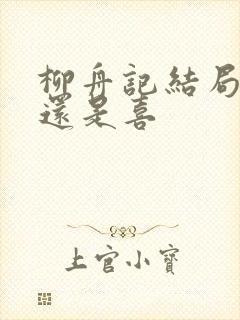 柳舟記結局
還是喜
上官小寶